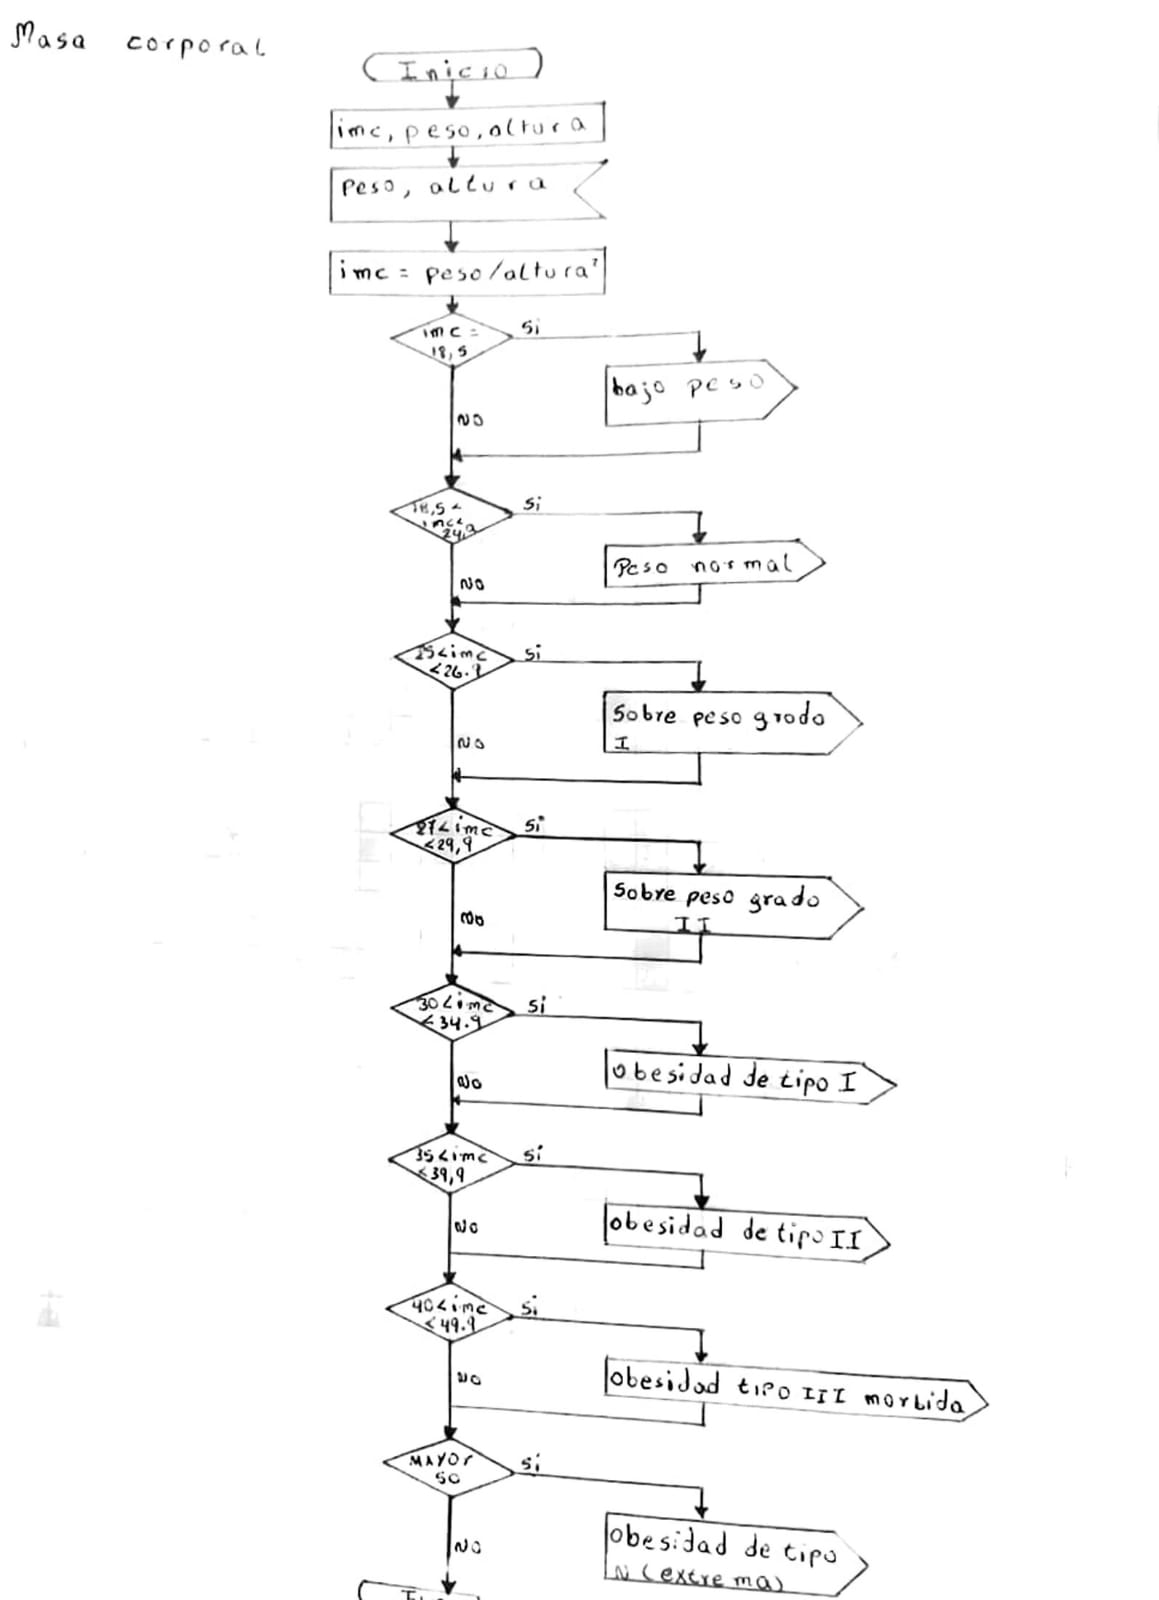 Masa corporal
Inicio
imc, peso, altura
Peso, altura
imc = peso/altura²
imc =
18,5
Si
bajo peso
NO
18,5 <
imc <
24,9
Si
Peso normal
NO
25<imc
<26.9
Si
Sobre peso grado
I
NO
27<imc
<29,9
Si
Sobre peso grado
II
No
30<imc
<34.9
Si
Obesidad de tipo I
No
35<imc
<39,9
Si
obesidad de tipo II
NO
40<imc
<49.9
Si
obesidad tipo III morbida
NO
MAYOr
50
Si
obesidad de tipo
(extrema)
NO